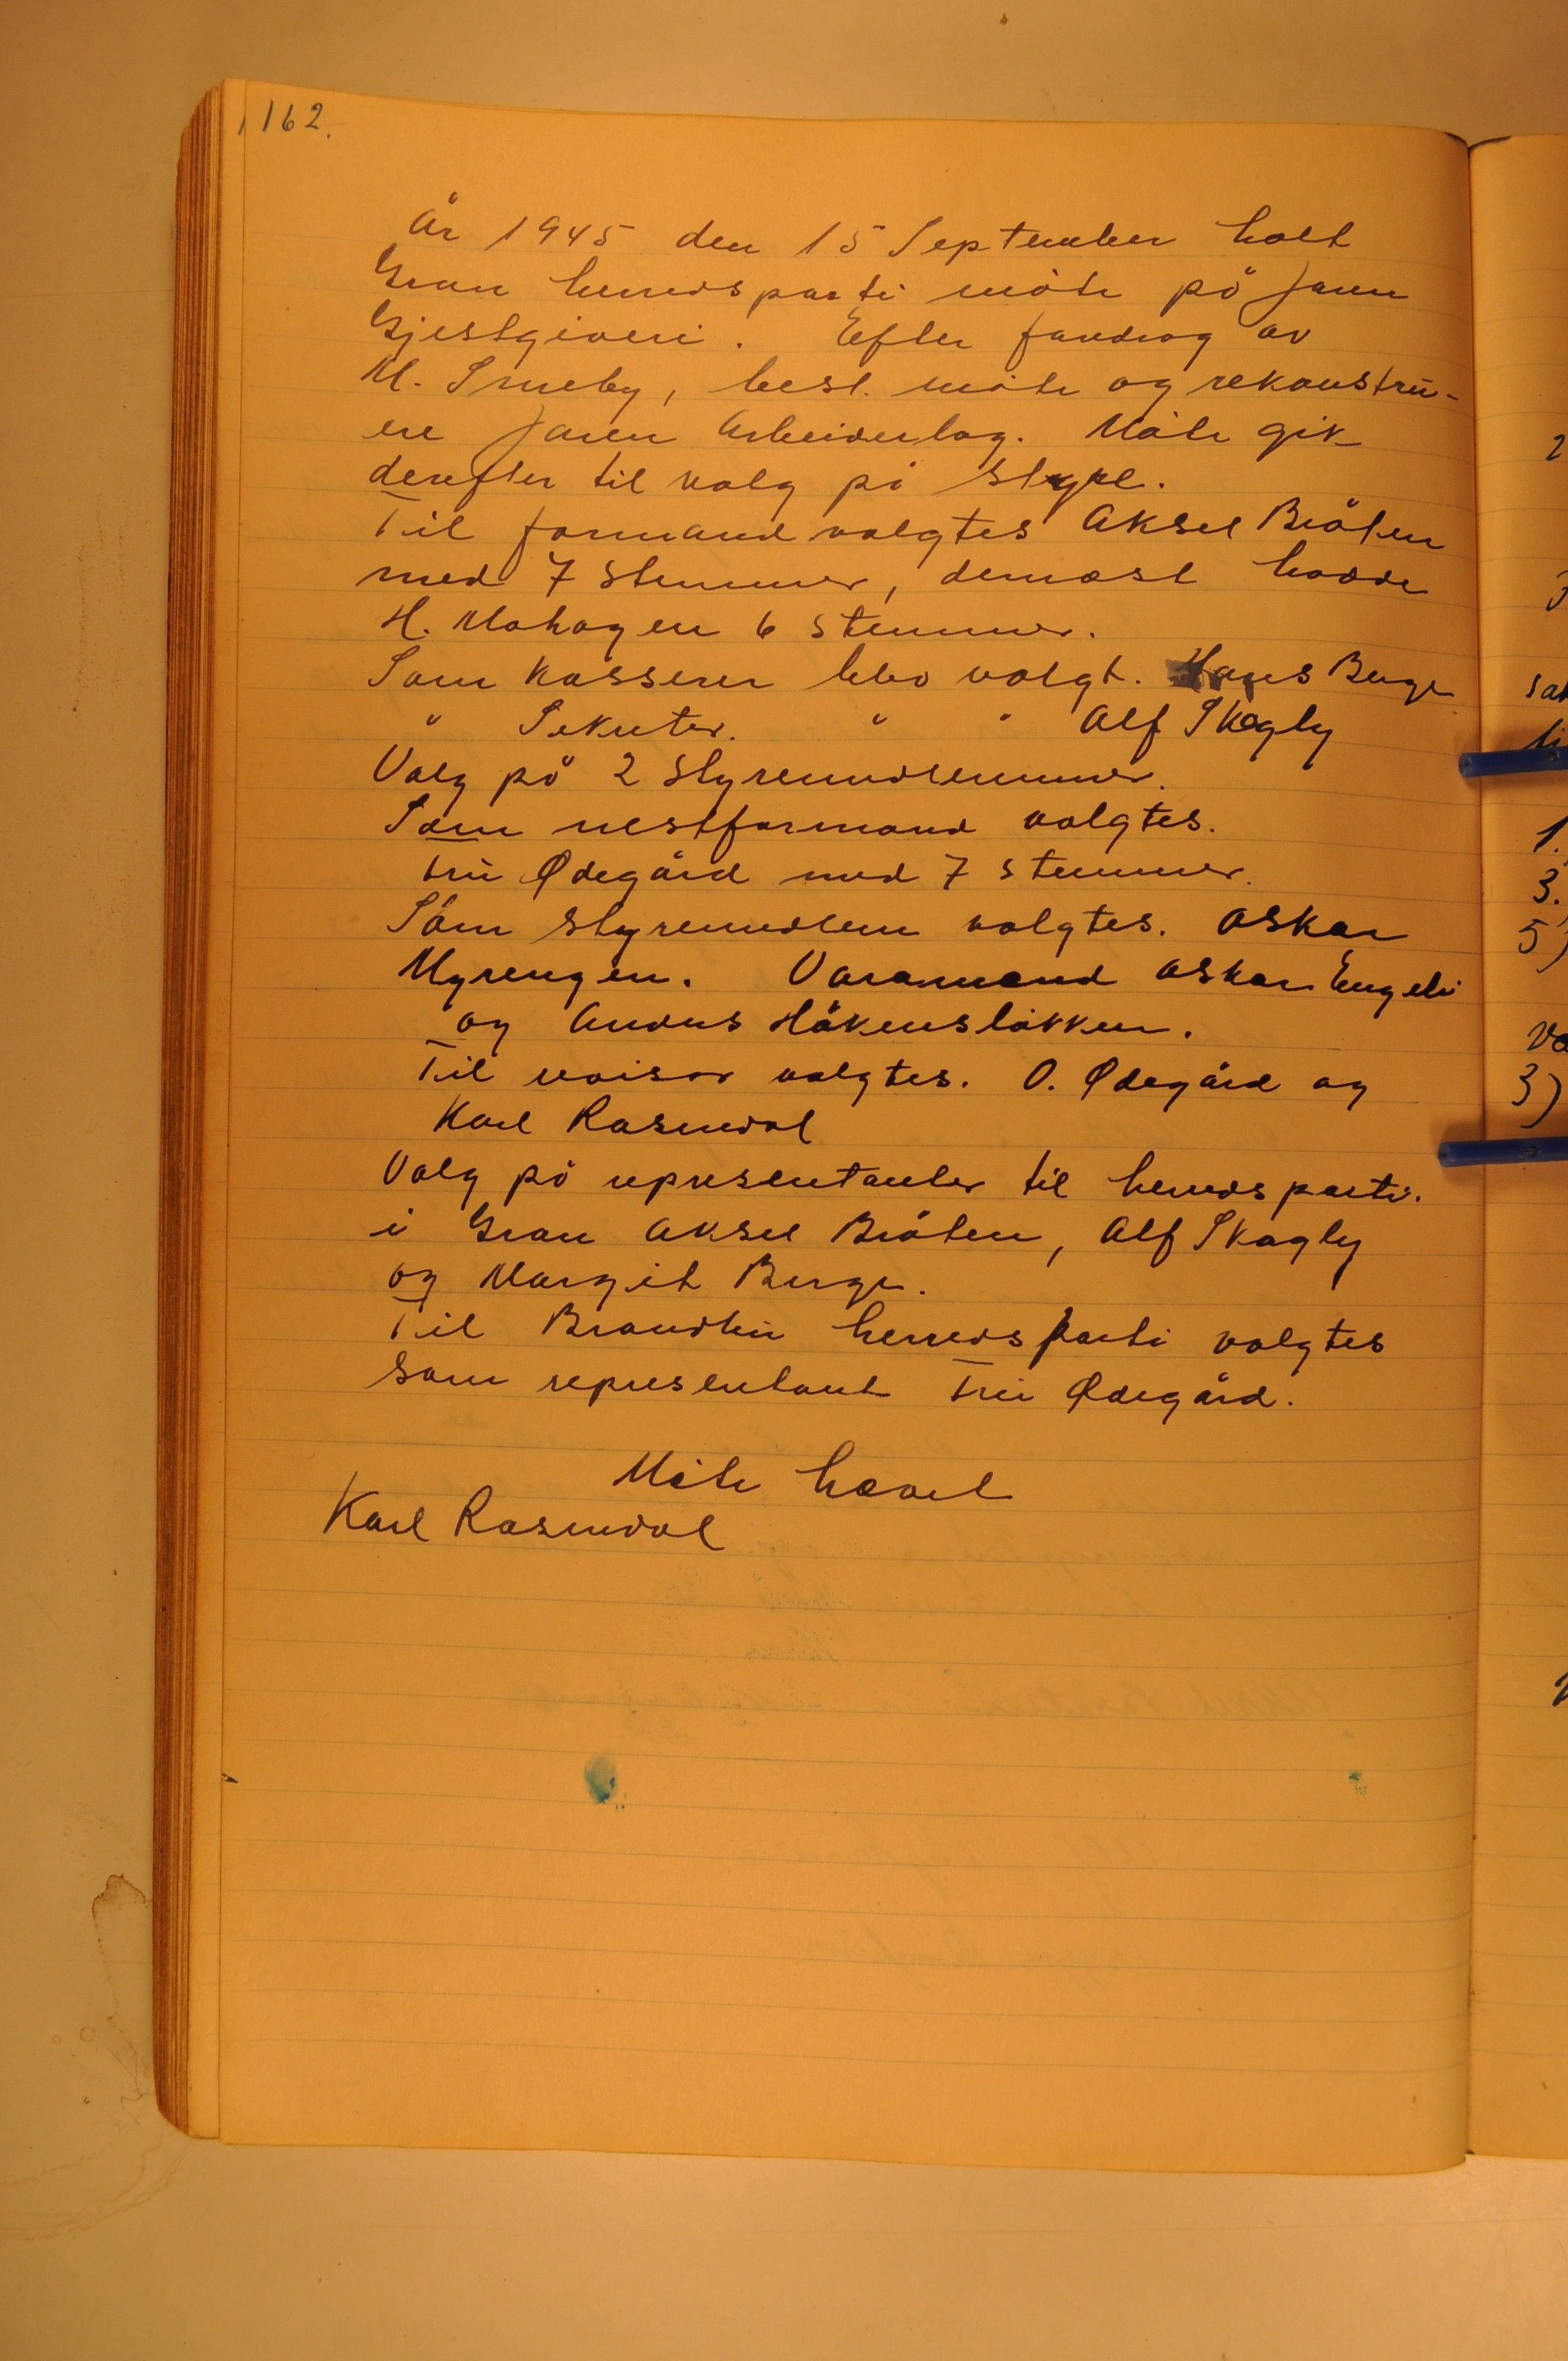 162.
År 1945 den 15 September holt
Gran herredsparti möte på Jaren
Gjestgiveri. Efter fordrag av
M. Smeby, besl. möte og rekonstru-
ere Jaren Arbeiderlag. Möte gik
derefter til valg på styre.
Til formand valgtes Aksel Bråten
med 7 stemmer, dernæst hadde
H. Mohagen 6 stemmer.
Som Kasserer blev valgt. Hans Berge
" Sekretær. " " Alf Skogly
Valg på 2 styremedlemmer.
Som nestformand valgtes.
Fru Ødegård med 7 stemmer.
Som styremedlem valgtes. Oskar
Myrengen. Varamænd Oskar Engeli
og Anders Håkenstökken.
Til revisor valgtes. O. Ødegård og
Karl Rosendal
Valg på representanter til herredsparti.
i Gran Aksel Bråten, Alf Skogly
og Margit Berge.
Til Brandbu herredsparti valgtes
som representant Fru Ødegård.
Möte hævet
Karl Rosendal
2
3
sak
ti
1.
3.
5)
Va
3)